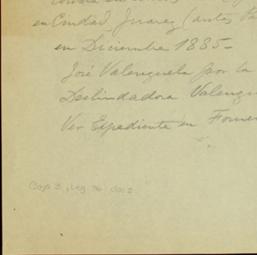 en Ciudad Juarez (antes Pa
en Diciembre 1885-
José Valenzuela por la
Deslindadora Valenzu
Ver Expediente en Fomen
Caja 3, Leg 76 doc 2